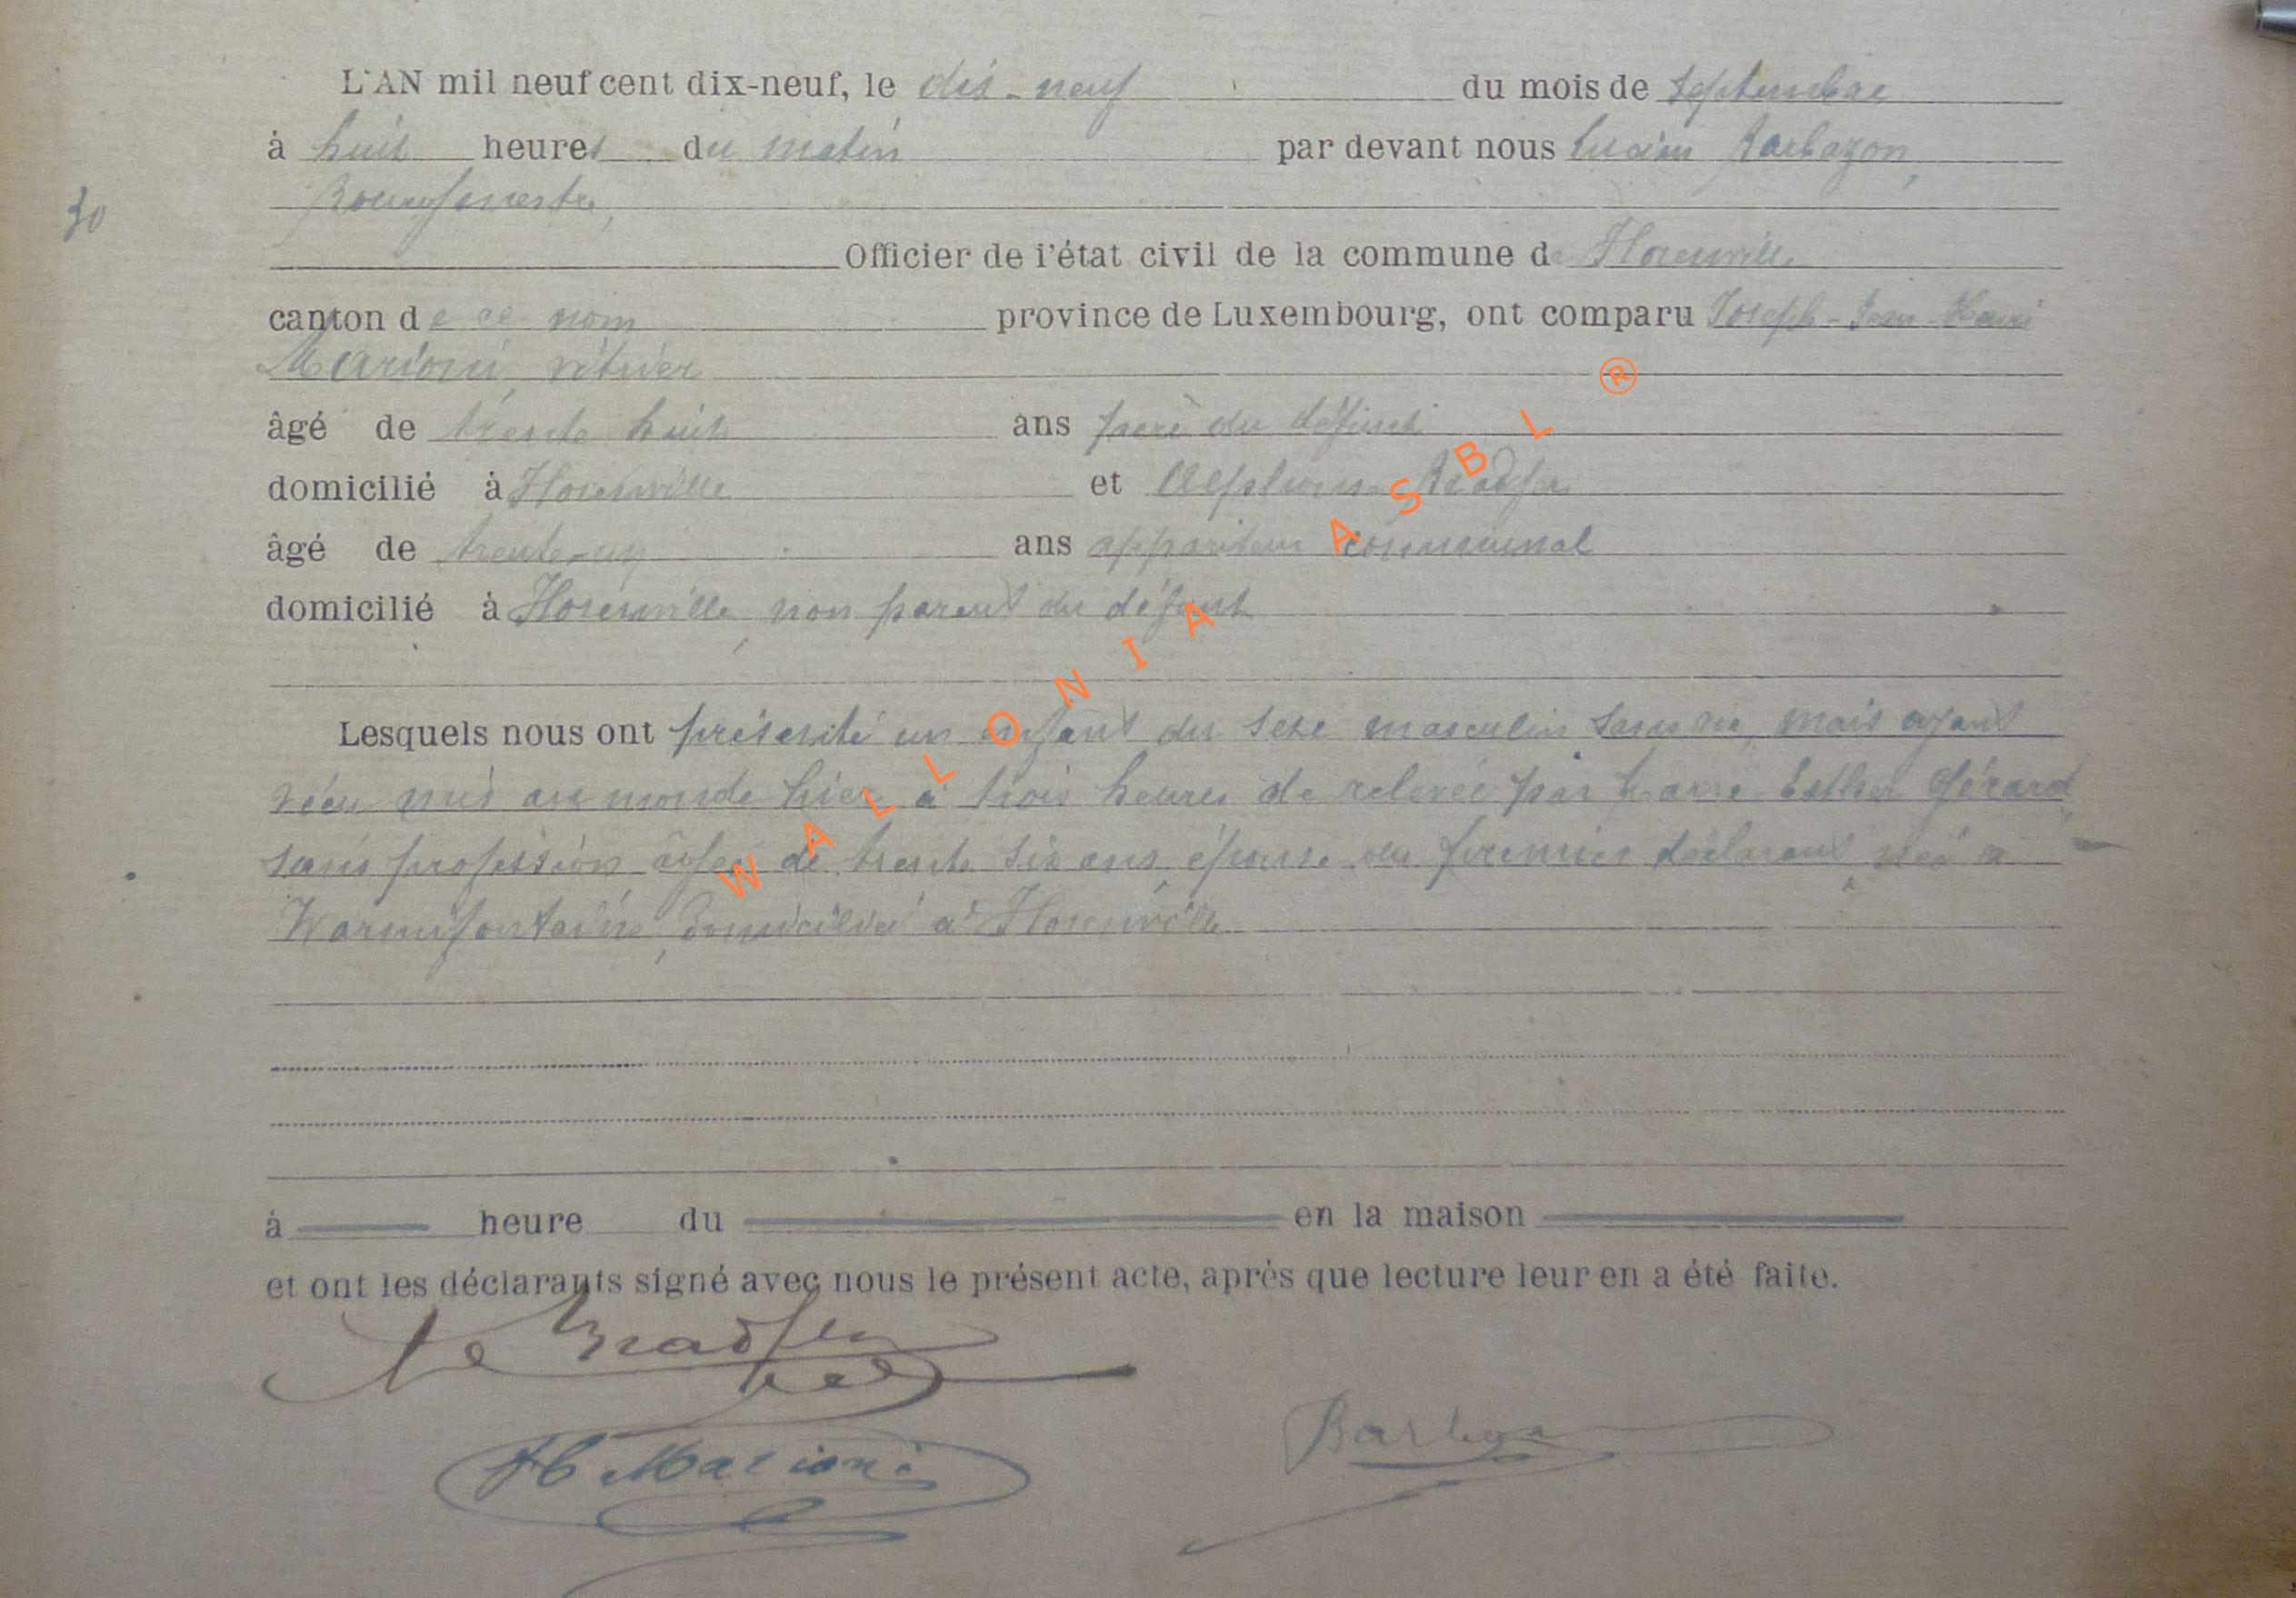 L'AN mil neuf cent dix-neuf, le dix-neuf du mois de septembre
à huit heures du matin par devant nous Lucien Barbazon,
Bourgmestre,
30
Officier de l'état civil de la commune de Florenville
canton de ce nom province de Luxembourg, ont comparu Joseph-Jean-Henri
Marioni, vitrier
âgé de trente huit ans père du défunt
domicilié à Florenville et Alphonse
âgé de trente-un ans appariteur communal
domicilié à Florenville, non parent du défunt
Lesquels nous ont présenté un enfant du sexe masculin sans vie, mais ayant
vécu mis au monde hier à trois heures de relevée par Marie Esther Gérard,
sans profession âgée de trente six ans, épouse du premier déclarant, née à
Warmifontaine, domiciliée à Florenville
à heure du en la maison
et ont les déclarants signé avec nous le présent acte, après que lecture leur en a été faite.
H Marioni
WALLONIA ASBL ®